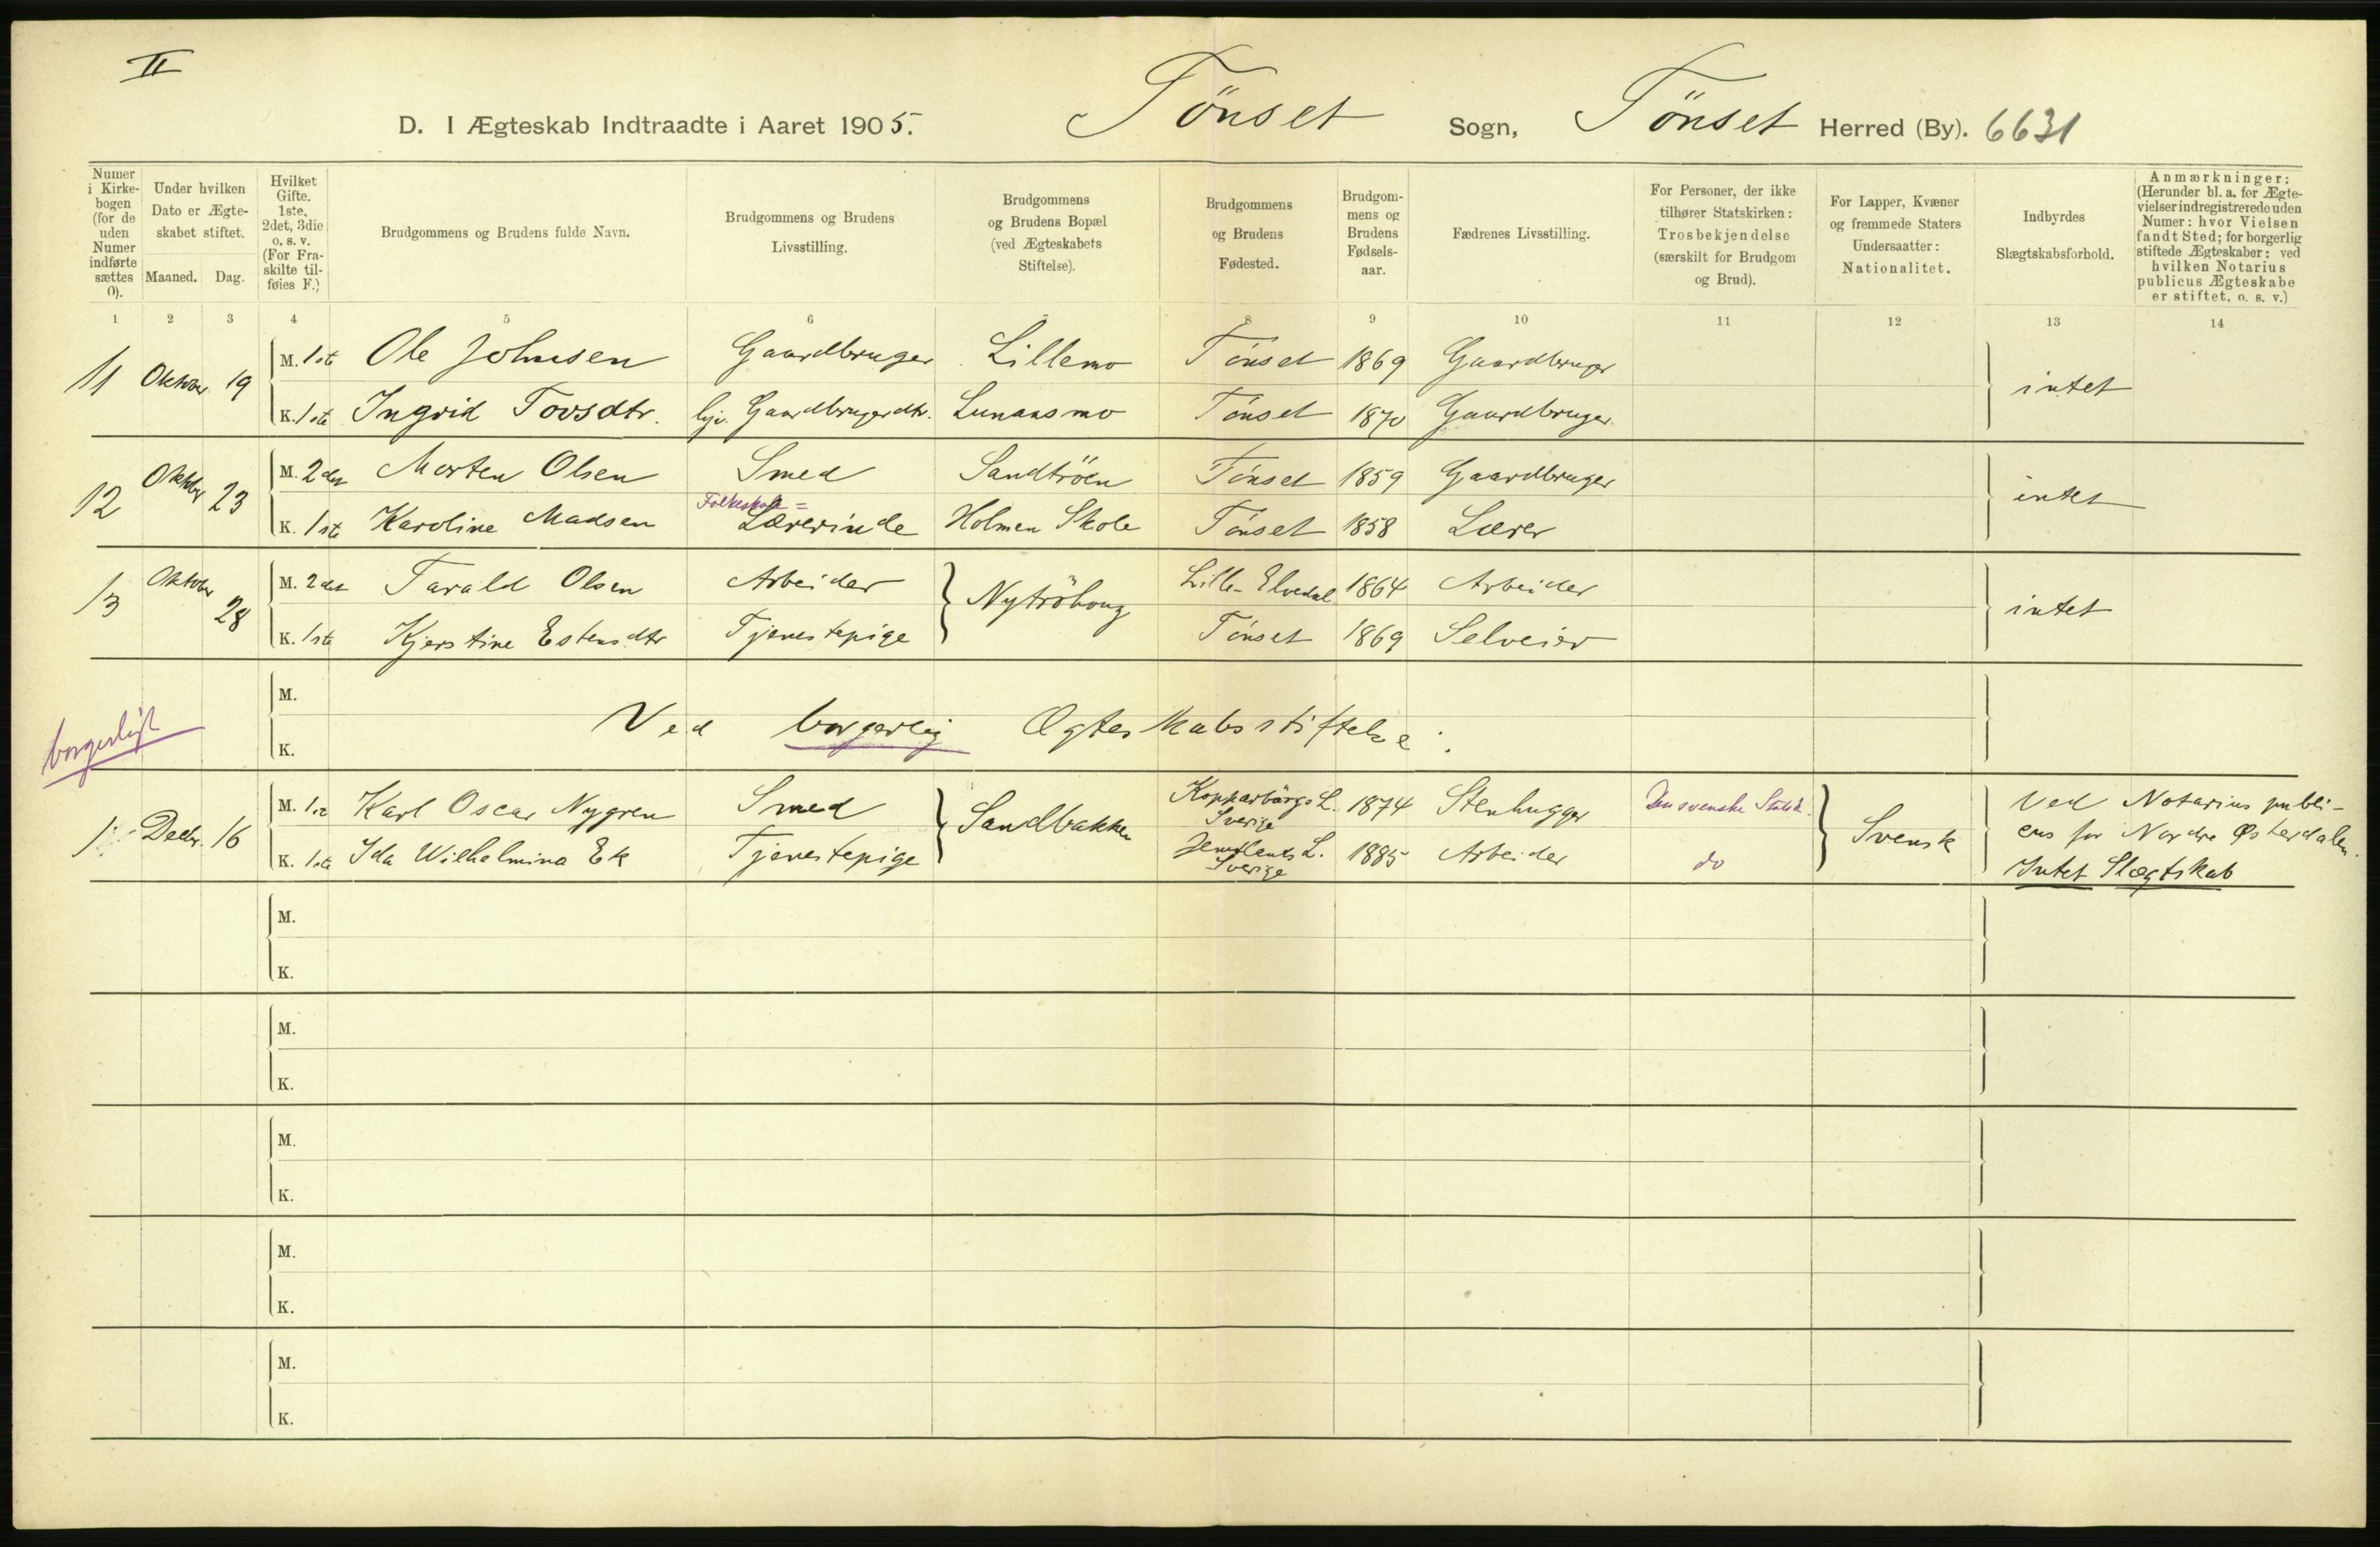 II
D. I Ægteskab Indtraadte i Aaret 1905. Tönset Sogn, Tönset Herred (By). 6631
Numer i Kirke- bogen (for de uden Numer indførte sættes 0).
Under hvilken Dato er Ægte- skabet stiftet.
Maaned. Dag.
Hvilket Gifte. 1ste, 2det, 3die o. s. v. (For Fra- skilte til- føies F.)
Brudgommens og Brudens fulde Navn.
Brudgommens og Brudens Livsstilling.
Brudgommens og Brudens Bopæl (ved Ægteskabets Stiftelse).
Brudgommens og Brudens Fødested.
Brudgom- mens og Brudens Fødsels- aar.
Fædrenes Livsstilling.
For Personer, der ikke tilhører Statskirken: Trosbekjendelse (særskilt for Brudgom og Brud).
For Lapper, Kvæner og fremmede Staters Undersaatter: Nationalitet.
Indbyrdes Slægtskabsforhold.
Anmærkninger: (Herunder bl. a. for Ægte- vielser indregistrerede uden Numer: hvor Vielsen fandt Sted; for borgerlig stiftede Ægteskaber: ved hvilken Notarius publicus Ægteskabe er stiftet, o. s. v.)
1 2 3 4 5 6 7 8 9 10 11 12 13 14
11 Oktober 19 M. 1ste Ole Johnsen Gaardbruger Lillemo Tönset 1869 Gaardbruger intet
K. 1ste Ingrid Tovsdtr. Gaardbrugerdtr. Lunaasmo Tönset 1870 Gaardbruger
12 Oktober 23 M. 2det Morten Olsen Smed Sandtröen Tönset 1859 Gaardbruger intet
K. 1ste Karoline Madsen Folkeskole= Lærerinde Holmen Skole Tönset 1858 Lærer
13 Oktober 28 M. 2det Tarald Olsen Arbeider Nytröhoug Lille-Elvedal 1864 Arbeider intet
K. 1ste Kjerstine Estensdtr Tjenestepige Tönset 1869 Selveier
M.
borgerligt K. Ved borgerlig Ægteskabsstiftelse.
1 Decbr. 16 M. 1ste Karl Oscar Nygren Smed Sandbakken Kopparbärgs L. Sverige 1874 Stenhugger Den svenske Statsk. Svensk Ved Notarius publi-
cus for Nordre Østerdalen.
K. 1ste Ida Wilhelmina Ek Tjenestepige Jemtlands L. Sverige 1885 Arbeider do Intet Slægtskab
M.
K.
M.
K.
M.
K.
M.
K.
M.
K.